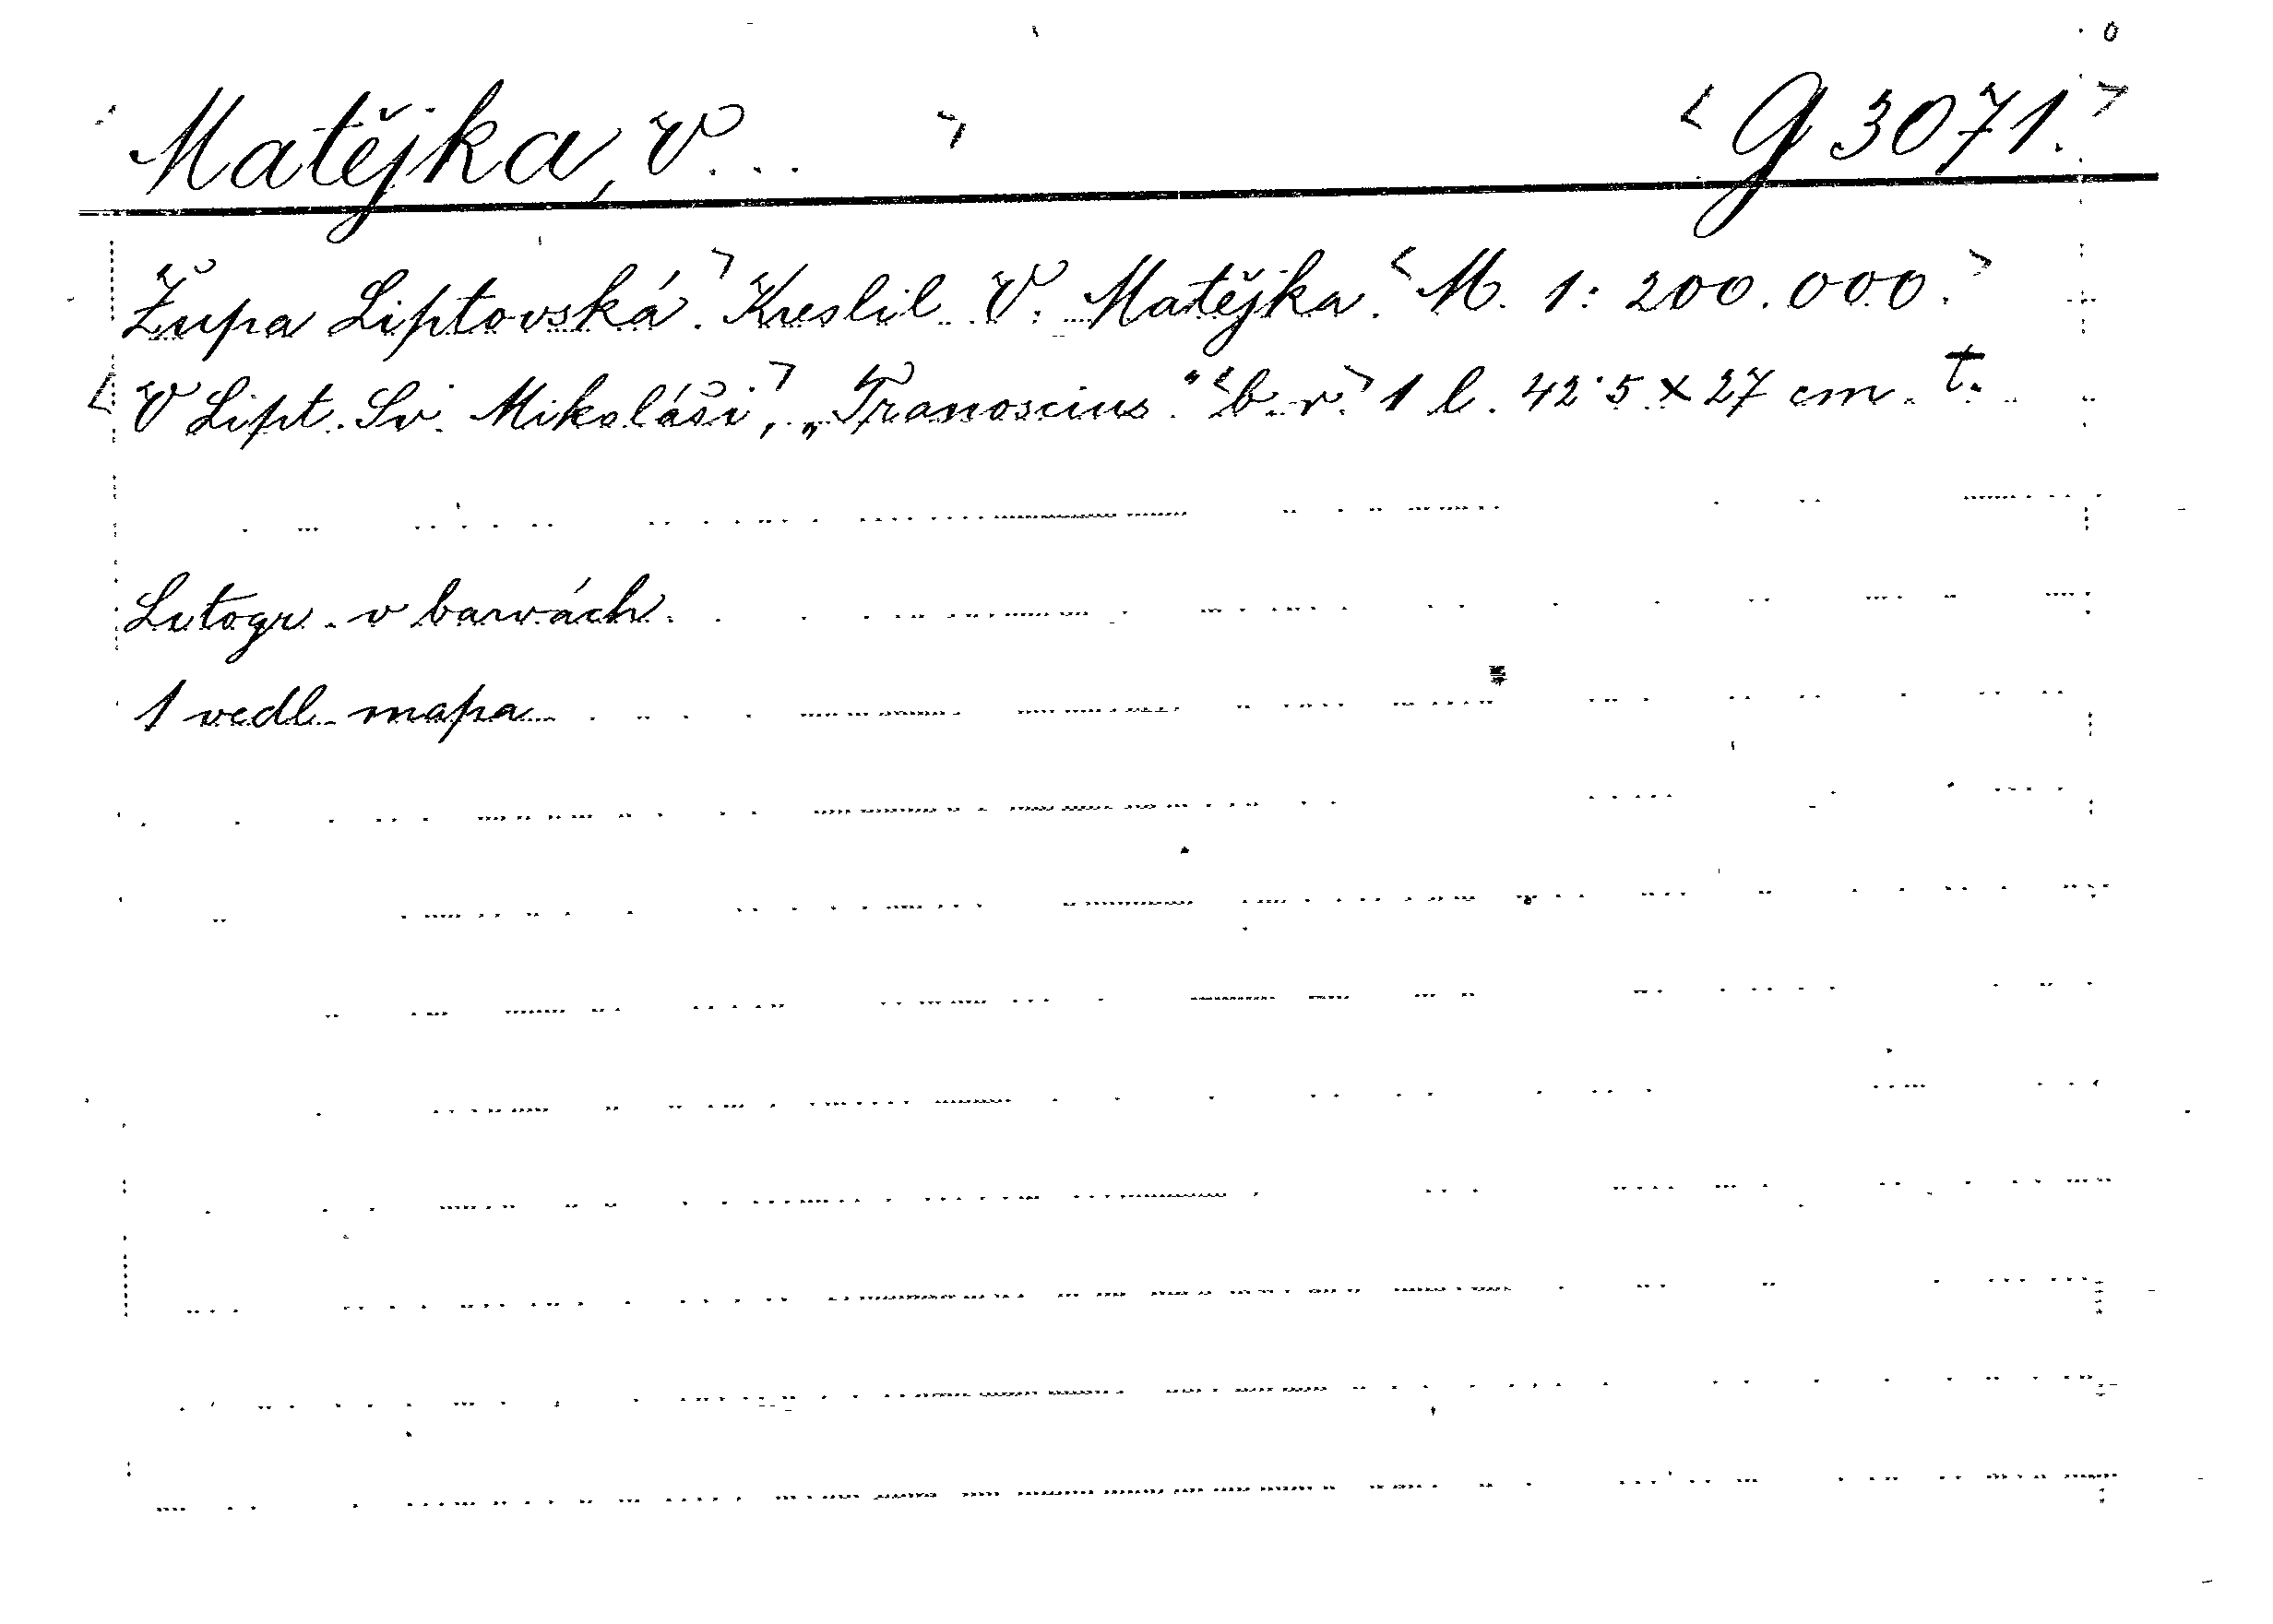 Matějka, V... G 3071.
Župa Liptovská. Kreslil V. Matějka. M. 1: 200.000.
V Lipt. Sv. Mikoláši, „Tranoscius.“ b. r. 1 l. 42·5 x 27 cm. t.
Litogr. v barvách.
1 vedl. mapa